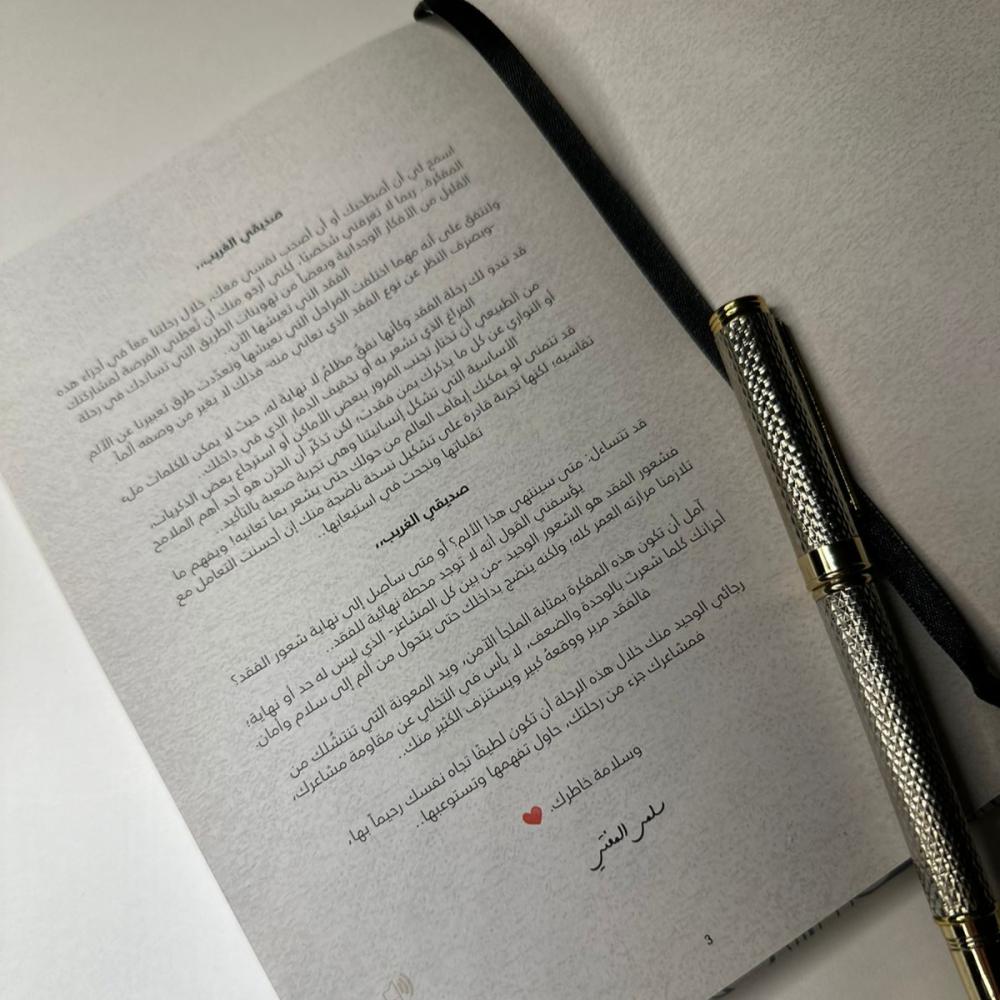 صديقي الغريب,,
اسمح لي أن أصطحبك أو أن أصحب نفسي معك، خلال رحلتنا معاً في أجزاء هذه
المفكرة.. ربما لا تعرفني شخصيًا، لكني أرجو منك أن تعطني الفرصة لمشاركتك
القليل من الأفكار الوجدانية وبعضاً من تهوينات الطريق التي تساندك في رحلة
الفقد التي تعيشها الآن..
ولنتفق على أنه مهما اختلفت المراحل التي نعيشها وتعدّدت طرق تعبيرنا عن الألم
-وبصرف النظر عن نوع الفقد الذي تعاني منه- فذلك لا يغير من وصفه ألماً.
قد تبدو لك رحلة الفقد وكأنها نفقٌ مظلمٌ لا نهاية له، حيث لا يمكن للكلمات ملء
الفراغ الذي تشعر به أو تخفيف الدمار الذي في داخلك.
من الطبيعي أن تختار تجنب المرور ببعض الأماكن أو استرجاع بعض الذكريات،
أو التواري عن كل ما يذكرك بمن فقدت، لكن تذكّر أن الحزن هو أحد أهم الملامح
الأساسية التي تشكل إنسانيتنا وهي تجربة صعبة بالتأكيد.
قد تتمنى لو يمكنك إيقاف العالم من حولك حتى يشعر بما تعانيه! ويفهم ما
تقاسيه، لكنها تجربة قادرة على تشكيل نسخة ناضجة منك إن أحسنت التعامل مع
تقلباتها ونجحت في استيعابها..
صديقي الغريب,,
قد تتساءل: متى سينتهي هذا الألم؟ أو متى سأصل إلى نهاية شعور الفقد؟
يؤسفني القول أنه لا توجد محطة نهائية للفقد..
فشعور الفقد هو الشعور الوحيد -من بين كل المشاعر- الذي ليس له حد أو نهاية،
تلازمنا مرارته العمر كله، ولكنه ينضج بداخلك حتى يتحول من ألم إلى سلام وأمان.
آمل أن تكون هذه المفكرة بمثابة الملجأ الآمن، ويد المعونة التي تنتشلك من
أحزانك كلما شعرت بالوحدة والضعف، لا بأس في التخلي عن مقاومة مشاعرك،
فالفقد مرير ووقعهُ كبير ويستنزف الكثير منك..
رجائي الوحيد منك خلال هذه الرحلة أن تكون لطيفًا تجاه نفسك رحيماً بها،
فمشاعرك جزء من رحلتك، حاول تفهمها وتستوعبها..
وسلامة خاطرك. ❤
سلمى المفتي
3